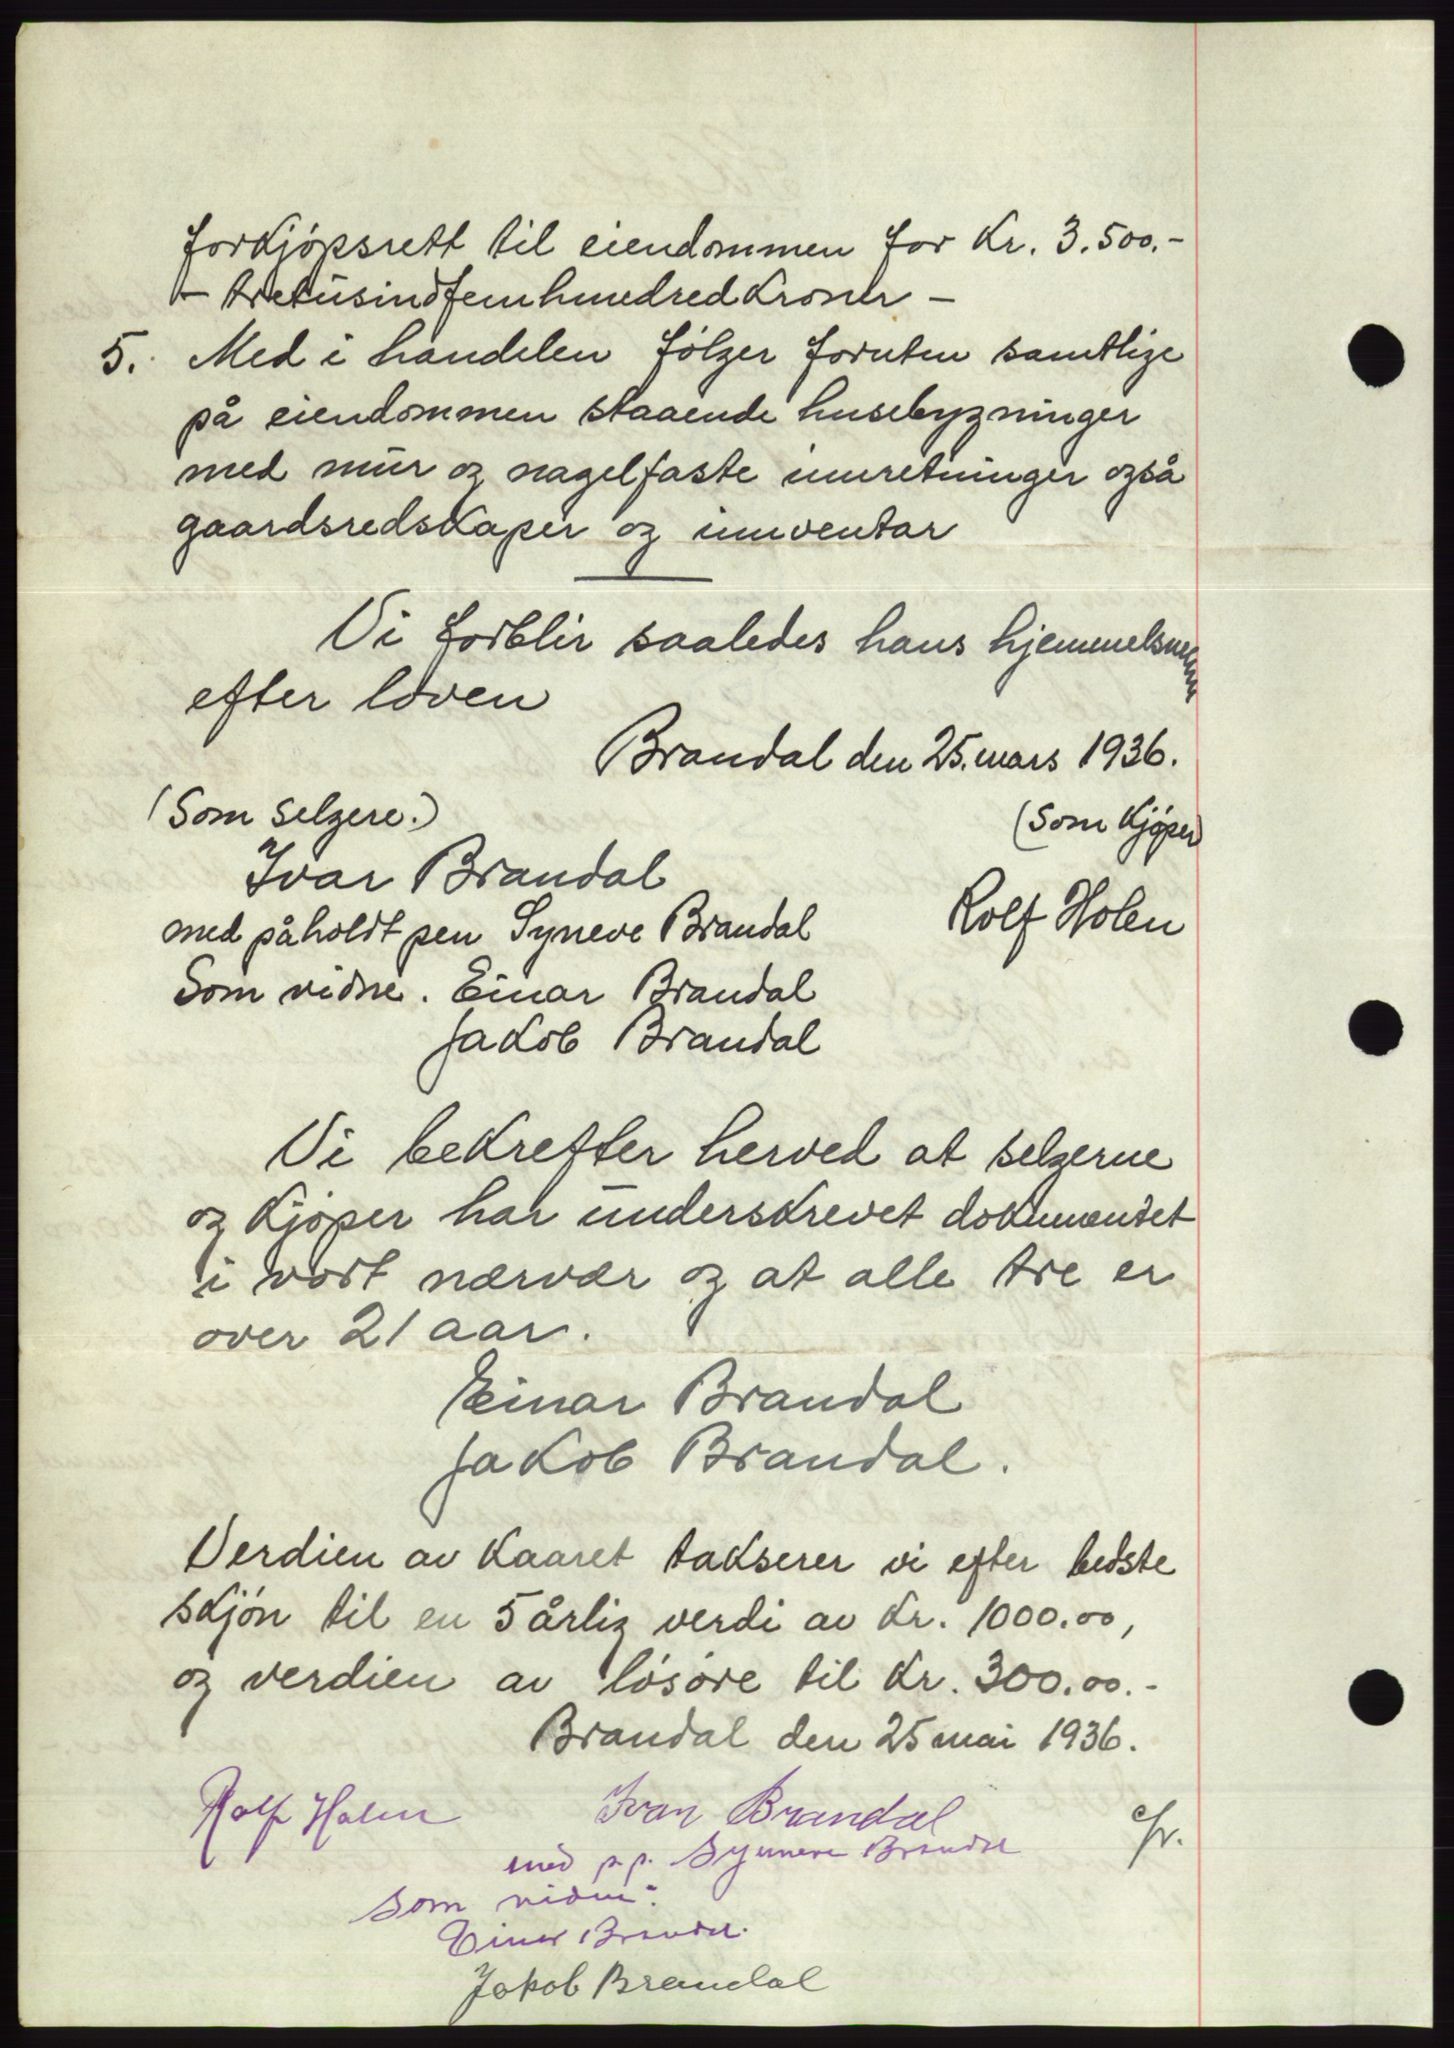 forkjøpsrett til eiendommen for Kr. 3.500.-
- tretusindfemhundredkroner -
5. Med i handelen følger foruten samtlige
på eiendommen staaende husebygninger
med mur og nagelfaste innretninger også
gaardsredskaper og innventar
Vi forblir saaledes hans hjemmelsmenn
efter loven
Brandal den 25. mars 1936.
(Som selgere.) (Som Kjøper)
Ivar Brandal
med påholdt pen Syneve Brandal Rolf Holen
Som vidne. Einar Brandal
Jakob Brandal
Vi bekrefter herved at selgerne
og Kjøper har underskrevet dokumentet
i vort nærvær og at alle tre er
over 21 aar.
Einar Brandal
Jakob Brandal.
Verdien av Kaaret takserer vi efter bedste
skjøn til en 5 årlig verdi av Kr. 1000.00,
og verdien av løsøre til Kr. 300.00.-
Brandal den 25 mai 1936.
Rolf Holen Ivar Brandal
med p.p. Synneve Brandal
som vidne:
Einar Brandal.
Jakob Brandal